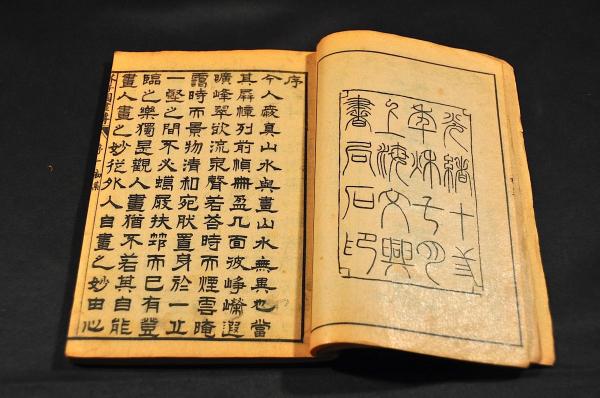 光緒十
年秋月
上海文興
書局石印
序
今人愛真山水與畫山水無異也當
其屏幛列前幀冊盈几面彼崢嶸遐
曠峰翠欲流泉聲若荅時而煙雲晻
靄時而景物清和宛肰置身於一丘
一壑之間不必蠟屐扶筇而已有登
臨之樂獨是觀人畫猶不若其自能
畫人畫之妙從外入自畫之妙由心